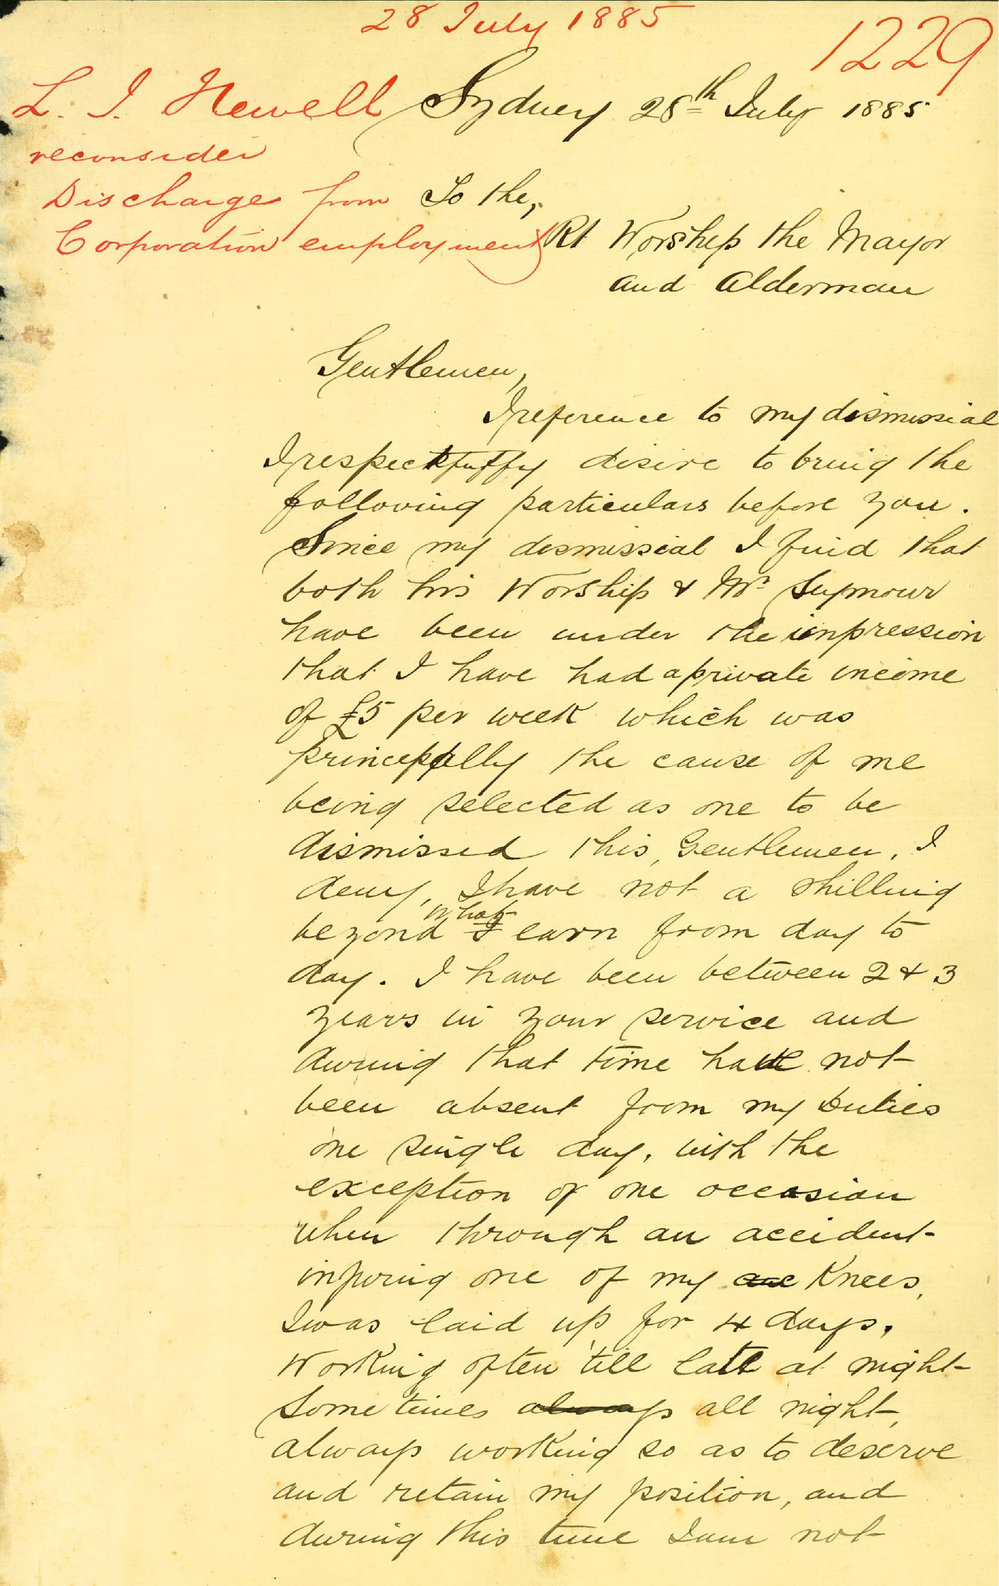 28 July 1885
1229
L. J. Newell
reconsider
Discharge from
Corporation employment
Sydney 28th July 1885
To the,
Rt Worship the Mayor
and Alderman
Gentlemen,
I reference to my dismissial
I respectfuffy desire to bring the
following particulars before you.
Since my dismissial I find that
both his Worship & Mr. Seymour
have been under the inpression
that I have had a private income
of £5 per week which was
princepally the cause of me
being selected as one to be
dismissed this, Gentlemen, I
deny, I have not a shilling
beyond what I earn from day to
day. I have been between 2 & 3
years in your service and
during that time have not
been absent from my Duties
one single day, with the
exception of one occasion
when through an accident
injuring one of my Knees,
I was laid up for 4 days.
Working often till late at night
Some times always all night,
always working so as to deserve
and retain my position, and
during this time I am not